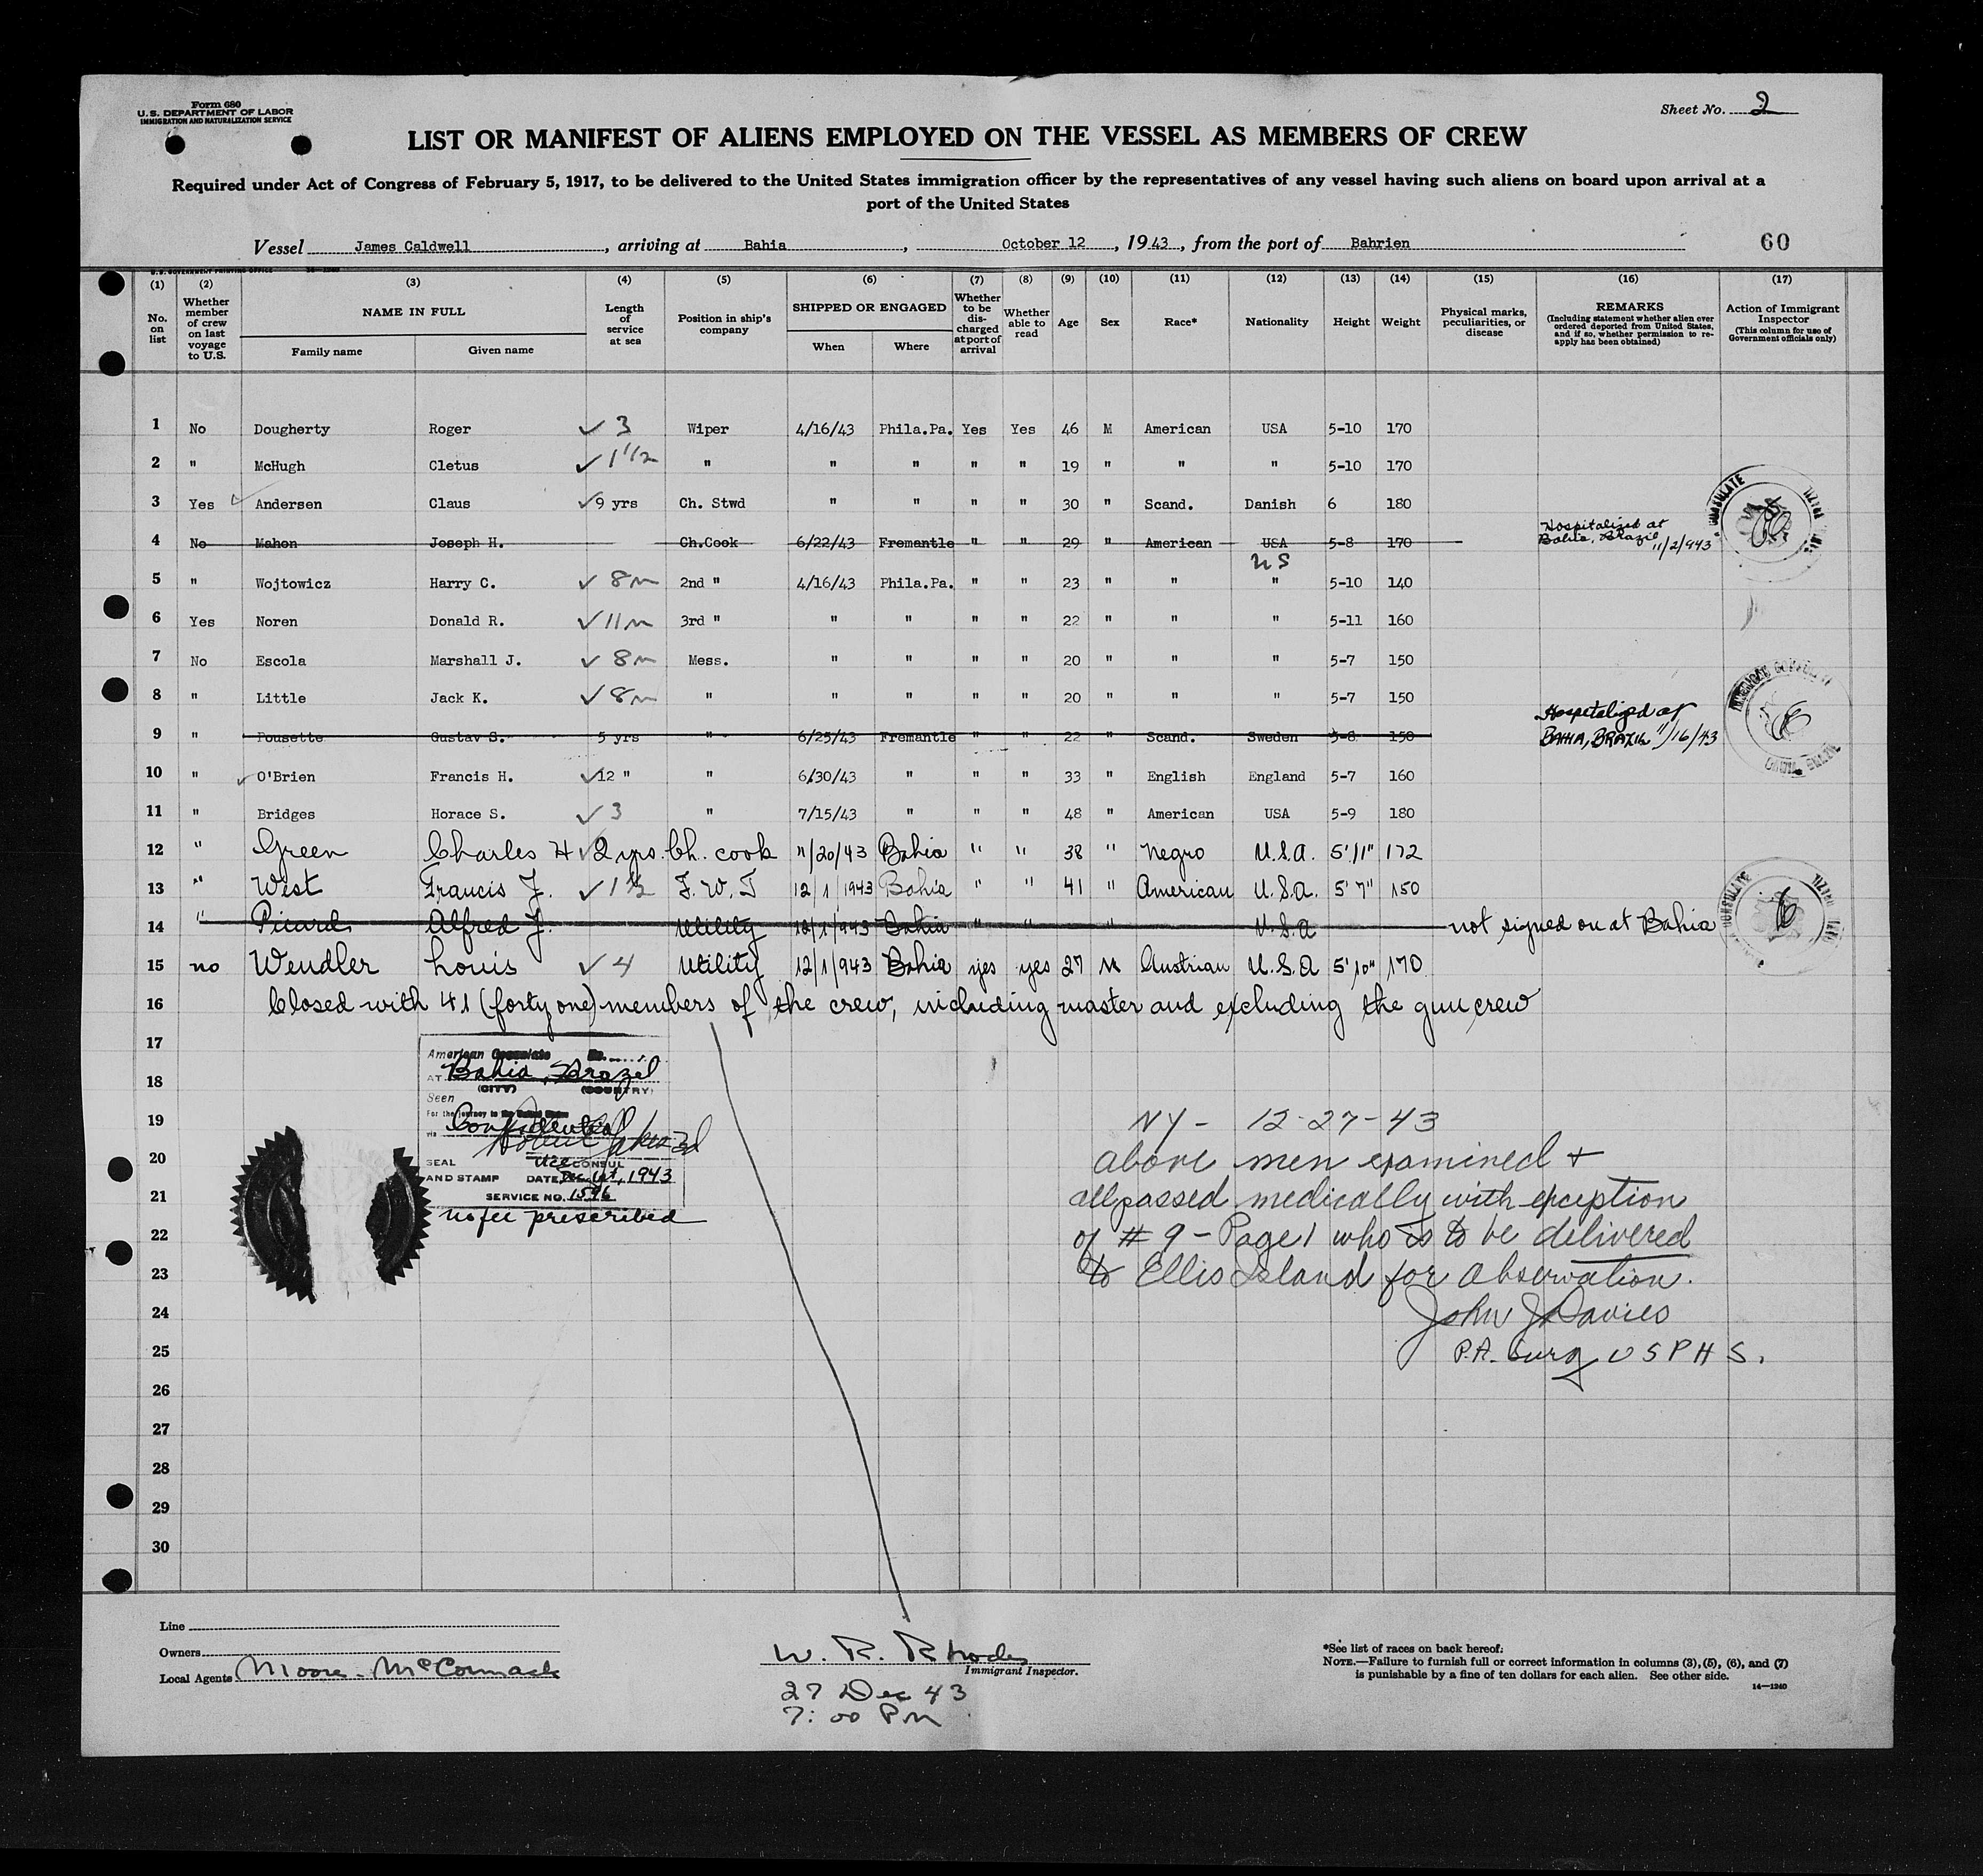 Form 680
U.S. DEPARTMENT OF LABOR
IMMIGRATION AND NATURALIZATION SERVICE
Sheet No. 2
LIST OR MANIFEST OF ALIENS EMPLOYED ON THE VESSEL AS MEMBERS OF CREW
Required under Act of Congress of February 5, 1917, to be delivered to the United States immigration officer by the representatives of any vessel having such aliens on board upon arrival at a
port of the United States
Vessel James Caldwell, arriving at Bahia, October 12, 1943, from the port of Bahrien 60
U.S. GOVERNMENT PRINTING OFFICE
(1) No. on list
(2) Whether member of crew on last voyage to U.S.
(3) NAME IN FULL Family name Given name
(4) Length of service at sea
(5) Position in ship's company
(6) SHIPPED OR ENGAGED When Where
(7) Whether to be discharged at port of arrival
(8) Whether able to read
(9) Age
(10) Sex
(11) Race*
(12) Nationality
(13) Height
(14) Weight
(15) Physical marks, peculiarities, or disease
(16) REMARKS (Including statement whether alien ever ordered deported from United States, and if so, whether permission to re-apply has been obtained)
(17) Action of Immigrant Inspector (This column for use of Government officials only)
1 No Dougherty Roger ✓ 3 Wiper 4/16/43 Phila.Pa. Yes Yes 46 M American USA 5-10 170
2 " McHugh Cletus ✓ 1 1/2 " " " " " 19 " " " 5-10 170
3 Yes ✓ Andersen Claus ✓ 9 yrs Ch. Stwd " " " " 30 " Scand. Danish 6 180
4 No Mahon Joseph H. Ch.Cook 6/22/43 Fremantle " " 29 " American USA 5-8 170 Hospitalized at Bahia, Brazil 11/2/943
US
5 " Wojtowicz Harry C. ✓ 8m 2nd " 4/16/43 Phila.Pa. " " 23 " " " 5-10 140
6 Yes Noren Donald R. ✓ 11m 3rd " " " " " 22 " " " 5-11 160
7 No Escola Marshall J. ✓ 8m Mess. " " " " 20 " " " 5-7 150
8 " Little Jack K. ✓ 8m " " " " " 20 " " " 5-7 150
9 " Pousette Gustav S. 5 yrs " 6/25/43 Fremantle " " 22 " Scand. Sweden 5-8 150 Hospitalized at BAHIA, BRAZIL 11/16/43
10 " ✓ O'Brien Francis H. ✓ 12 " " 6/30/43 " " " 33 " English England 5-7 160
11 " Bridges Horace S. ✓ 3 " 7/15/43 " " " 48 " American USA 5-9 180
12 " Green Charles H ✓ 2 yrs. Ch. cook 11/20/43 Bahia " " 38 " Negro U.S.A. 5'11" 172
13 " West Francis J. ✓ 1 1/2 F.W.T 12/1/1943 Bahia " " 41 " American U.S.A. 5'7" 150
14 " Picard Alfred J. Utility 12/1/943 Bahia " " " U.S.A not signed on at Bahia
15 no Wendler Louis ✓ 4 Utility 12/1/943 Bahia yes yes 27 M Austrian U.S.A 5'10" 170
16 Closed with 41 (forty one) members of the crew, including master and excluding the gun crew
17
18
19
20
21
22
23
24
25
26
27
28
29
30
American Consulate No.
AT Bahia, Brazil
(CITY) (COUNTRY)
Seen
For the journey to the United States
via Confidential
SEAL Vice CONSUL
AND STAMP DATE Dec 1st, 1943
SERVICE NO. 1596
no fee prescribed
NY - 12-27-43
above men examined +
all passed medically with exception
of #9 - Page 1 who is to be delivered
to Ellis Island for observation.
John J Davies
P.A. Surg USPHS.
Line
Owners
Local Agents Moore-McCormack
W. R. Rhodes
Immigrant Inspector.
27 Dec 43
7:00 PM
*See list of races on back hereof.
NOTE.—Failure to furnish full or correct information in columns (3), (5), (6), and (7)
is punishable by a fine of ten dollars for each alien. See other side.
14—1240